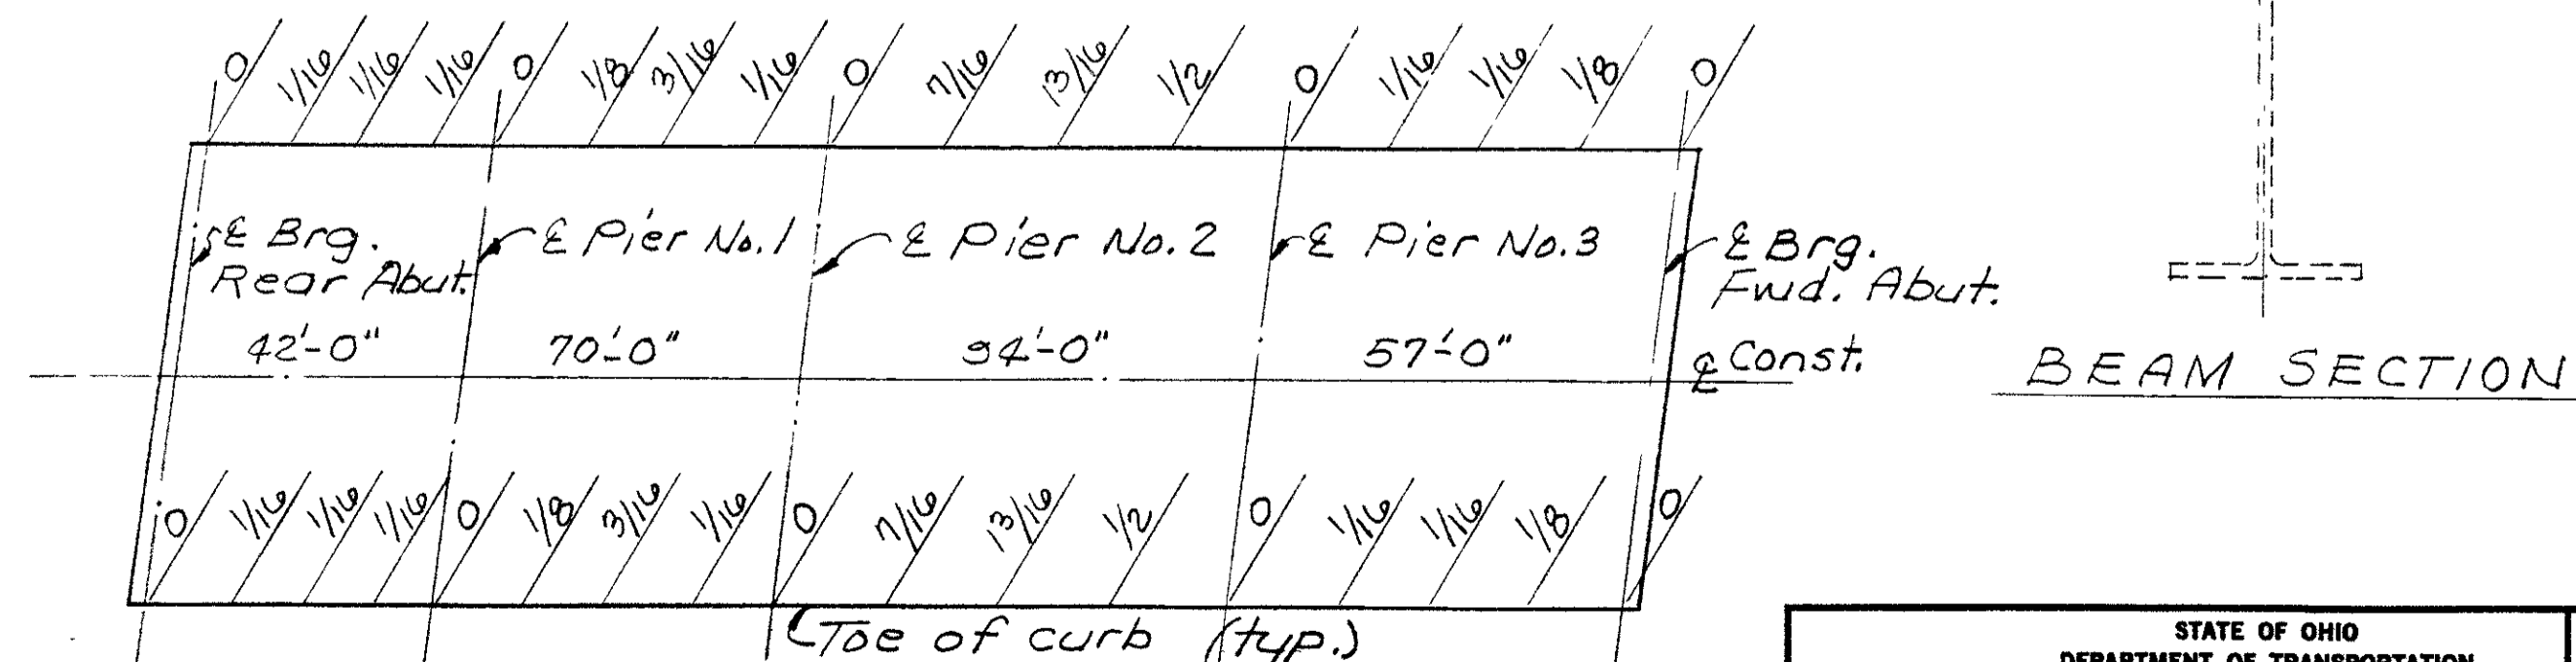 0 1/16 1/16 1/16 0 1/8 3/16 1/16 0 7/16 13/16 1/2 0 1/16 1/16 1/8 0
℄ Brg.
Rear Abut.
℄ Pier No. 1
℄ Pier No. 2
℄ Pier No. 3
℄ Brg.
Fwd. Abut.
42'-0" 70'-0" 94'-0" 57'-0"
℄ Const.
BEAM SECTION
0 1/16 1/16 1/16 0 1/8 3/16 1/16 0 7/16 13/16 1/2 0 1/16 1/16 1/8 0
Toe of curb (typ.)
STATE OF OHIO
DEPARTMENT OF TRANSPORTATION